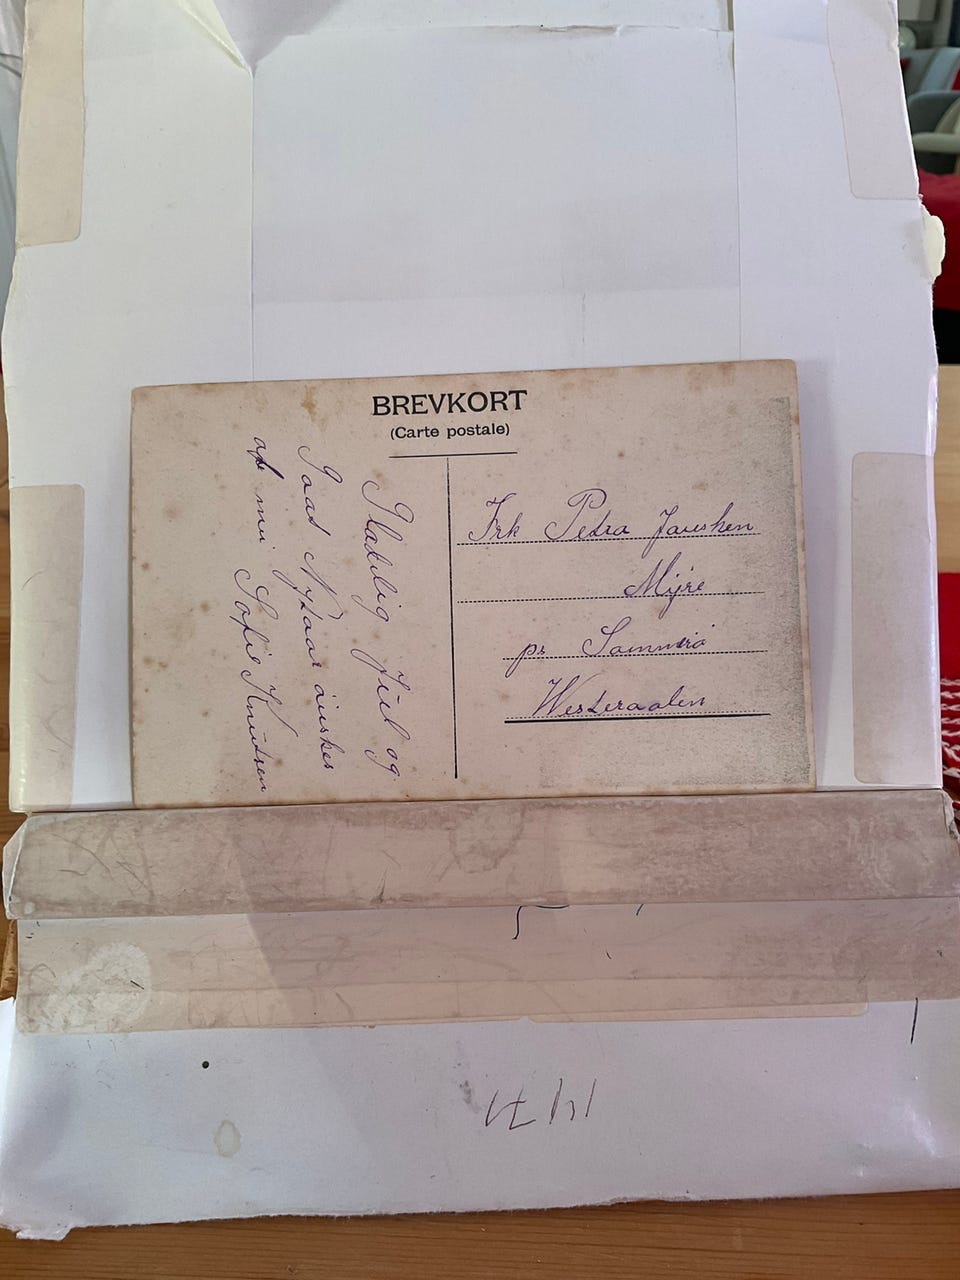 BREVKORT
(Carte postale)
Glædelig Jul og
Godt Nytaar ønskes
af mig Sofie Knudsen
Frk Petra
Myre
pr Sommerø
Westeraalen